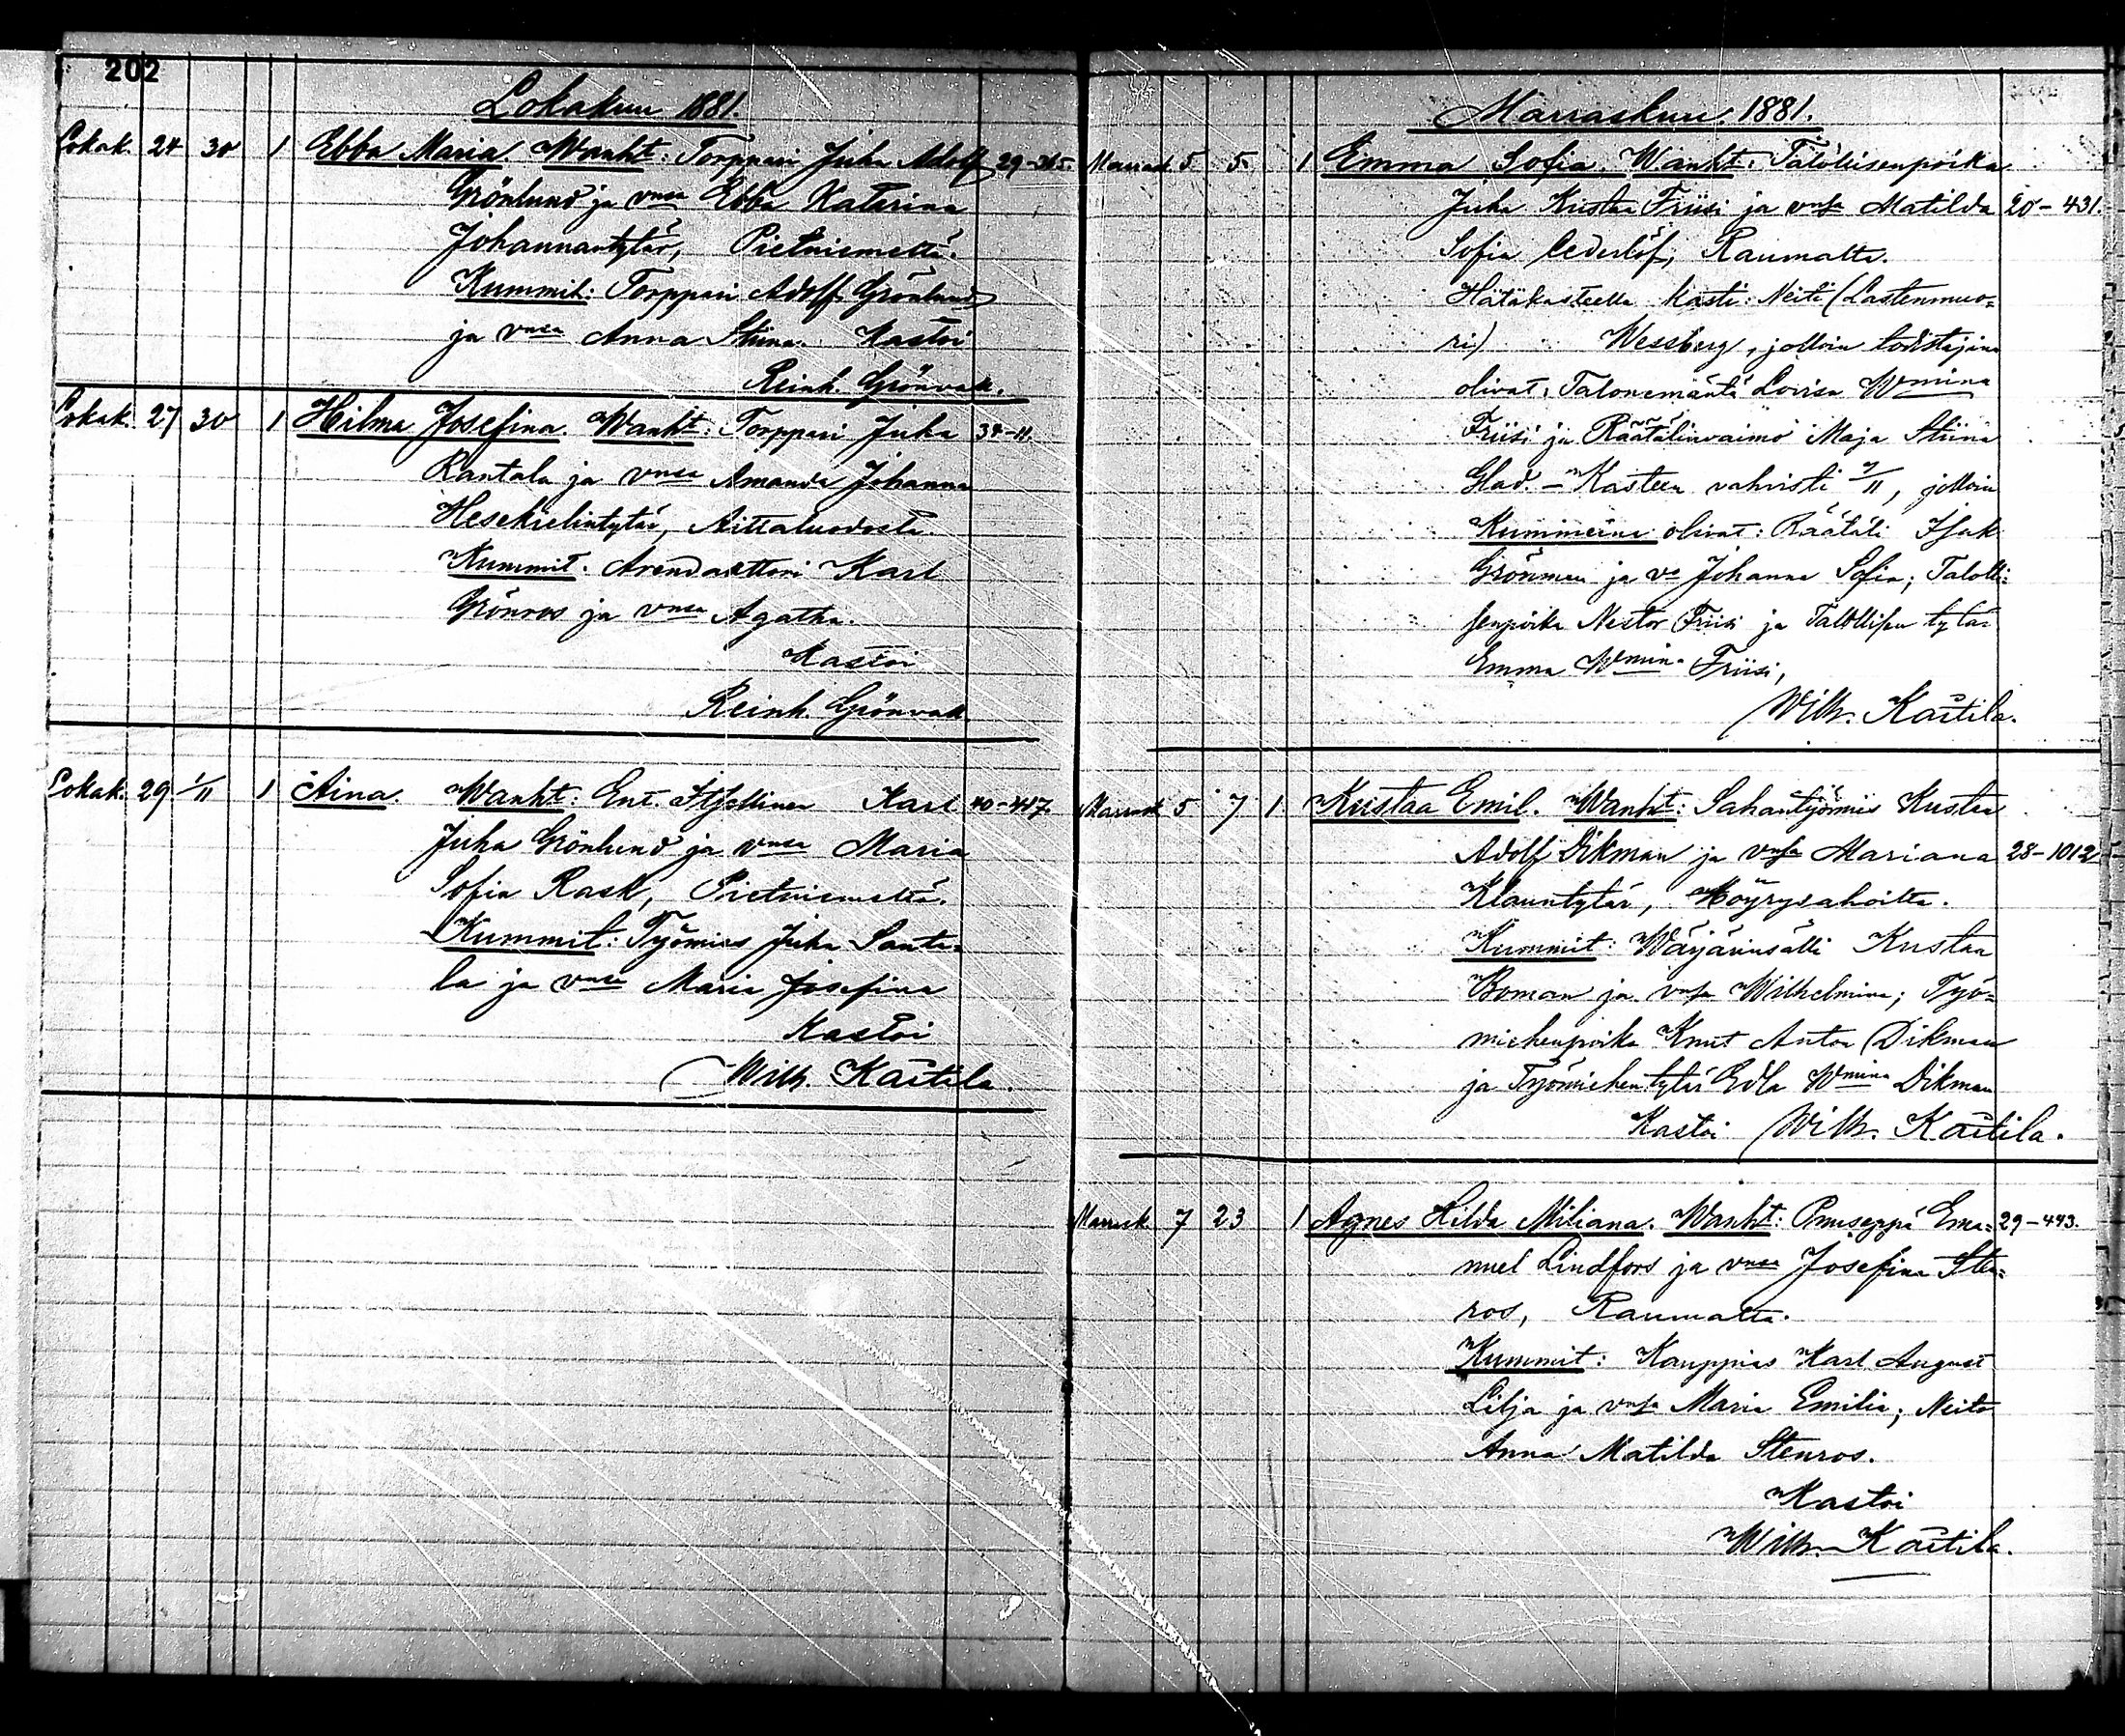 202
Lokakuu 1881.
Lokak. 24 30 1 Ebba Maria. Wanht: Torppari Juha Adolf 29-365.
Grönlund ja vnsa Ebba Katarina
Johannantytär, Pietniemeltä.
Kummit: Torppari Adolf Grönlund
ja vnsa Anna Stiina. Kastoi
Reinh. Grönvall.
Lokak. 27 30 1 Hilma Josefina. Wanht: Torppari Juha 34-11.
Rantala ja vnsa Amanda Johanna
Hesekielintytär, Aittaluodosta.
Kummit. Arendaattori Karl
Grönroos ja vnsa Agatha.
Kastoi
Reinh. Grönvall
Lokak. 29 1/11 1 Aina. Wanht: Ent. Itsellinen Karl 40-417.
Juha Grönlund ja vnsa Maria
Sofia Rask, Pietniemeltä.
Kummit: Työmies Juha Santa=
la ja vnsa Maria Josefina
Kastoi
Wilh. Kastila.
Marraskuu. 1881.
Marrask 5 5 1 Emma Sofia. Wanht: Talollisenpoika
Juha Kustaa Friisi ja vnsa Matilda 20-431.
Sofia Cederlöf, Raumalta.
Hätäkasteella kasti: Neiti (Lastenmuo=
ri) Wessberg, jolloin todistajina
olivat: Talonemäntä Lovisa Wmina
Friisi ja Räätälinvaimo Maja Stiina
Glad. - Kasteen vahvisti 7/11, jolloin
Kummeina olivat: Räätäli Isak
Grönman ja vo Johanna Sofia; Talolli=
senpoika Nestor Friisi ja Talollisen tytär
Emma Wmin. Friisi,
Wilh. Kastila.
Marrask 5 7 1. Kustaa Emil. Wanht: Sahantyömies Kustaa
Adolf Dikman ja vnsa Mariana 28-1012
Klauntytär, Höyrysahoilta.
Kummit: Wärjärinsälli Kustaa
Boman ja vnsa Wilhelmina; Työ=
miehenpoika Knut Anton Dikman
ja Työmiehentytär Edla Wmina Dikman
Kastoi Wilh. Kastila.
Marrask 7 23 1 Agnes Hilda Miliana. Wanht: Puuseppä Ema= 29-443.
nuel Lindfors ja vnsa Josefina Sten=
ros, Raumalta.
Kummit: Kauppias Karl August
Lilja ja vnsa Maria Emilia; Neito
Anna Matilda Stenros.
Kastoi
Wilh. Kastila.